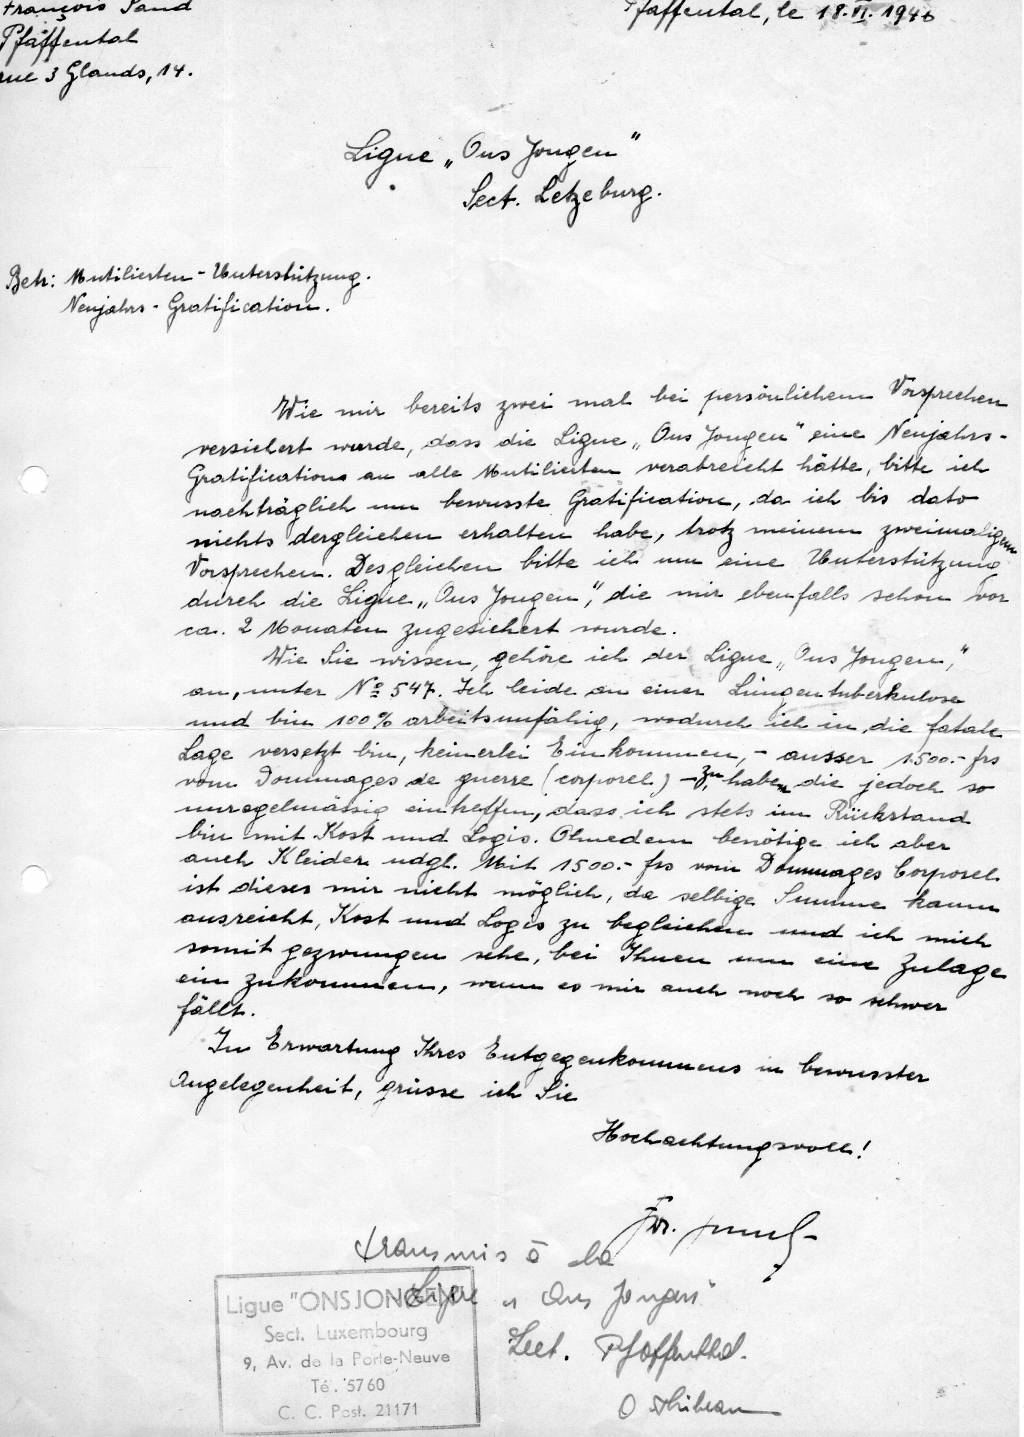 François Sand
Pfaffental
rue 3 Glands, 14.
Pfaffental, le 18.VI.1946
Ligue „Ons Jongen"
Sect. Letzeburg.
Betr: Mutilierten-Unterstützung.
Neujahrs-Gratification.
Wie mir bereits zwei mal bei persönlichem Vorsprechen
versichert wurde, dass die Ligue „Ons Jongen" eine Neujahrs-
Gratifications an alle Mutilierten verabreicht hätte, bitte ich
nachträglich um bewusste Gratification, da ich bis dato
nichts dergleichen erhalten habe, trotz meinem zweimaligem
Vorsprechen. Desgleichen bitte ich um eine Unterstützung
durch die Ligue „Ons Jongen", die mir ebenfalls schon vor
ca. 2 Monaten zugesichert wurde.
Wie Sie wissen, gehöre ich der Ligue „Ons Jongen,"
an, unter No 547. Ich leide an einer Lungentuberkulose
und bin 100% arbeitsunfähig, wodurch ich in die fatale
Lage versetzt bin, keinerlei Einkommen, - ausser 1500.- frs
vom Dommages de guerre (corporel) - zu haben, die jedoch so
unregelmässig eintreffen, dass ich stets im Rückstand
bin mit Kost und Logis. Ohnedem benötige ich aber
auch Kleider udgl. Mit 1500.- frs vom Dommages Corporel
ist dieses mir nicht möglich, da selbige Summe kaum
ausreicht, Kost und Logis zu begleichen und ich mich
somit gezwungen sehe, bei Ihnen um eine Zulage
ein zukommen, wenn es mir auch noch so schwer
fällt.
In Erwartung Ihres Entgegenkommens in bewusster
Angelegenheit, grüsse ich Sie
Hochachtungsvoll!
transmis à la
Ligue „Ons Jongen"
Sect. Pfaffenthal.
Ligue "ONS JONGEN"
Sect. Luxembourg
9, Av. de la Porte-Neuve
Té. 5760
C. C. Post. 21171